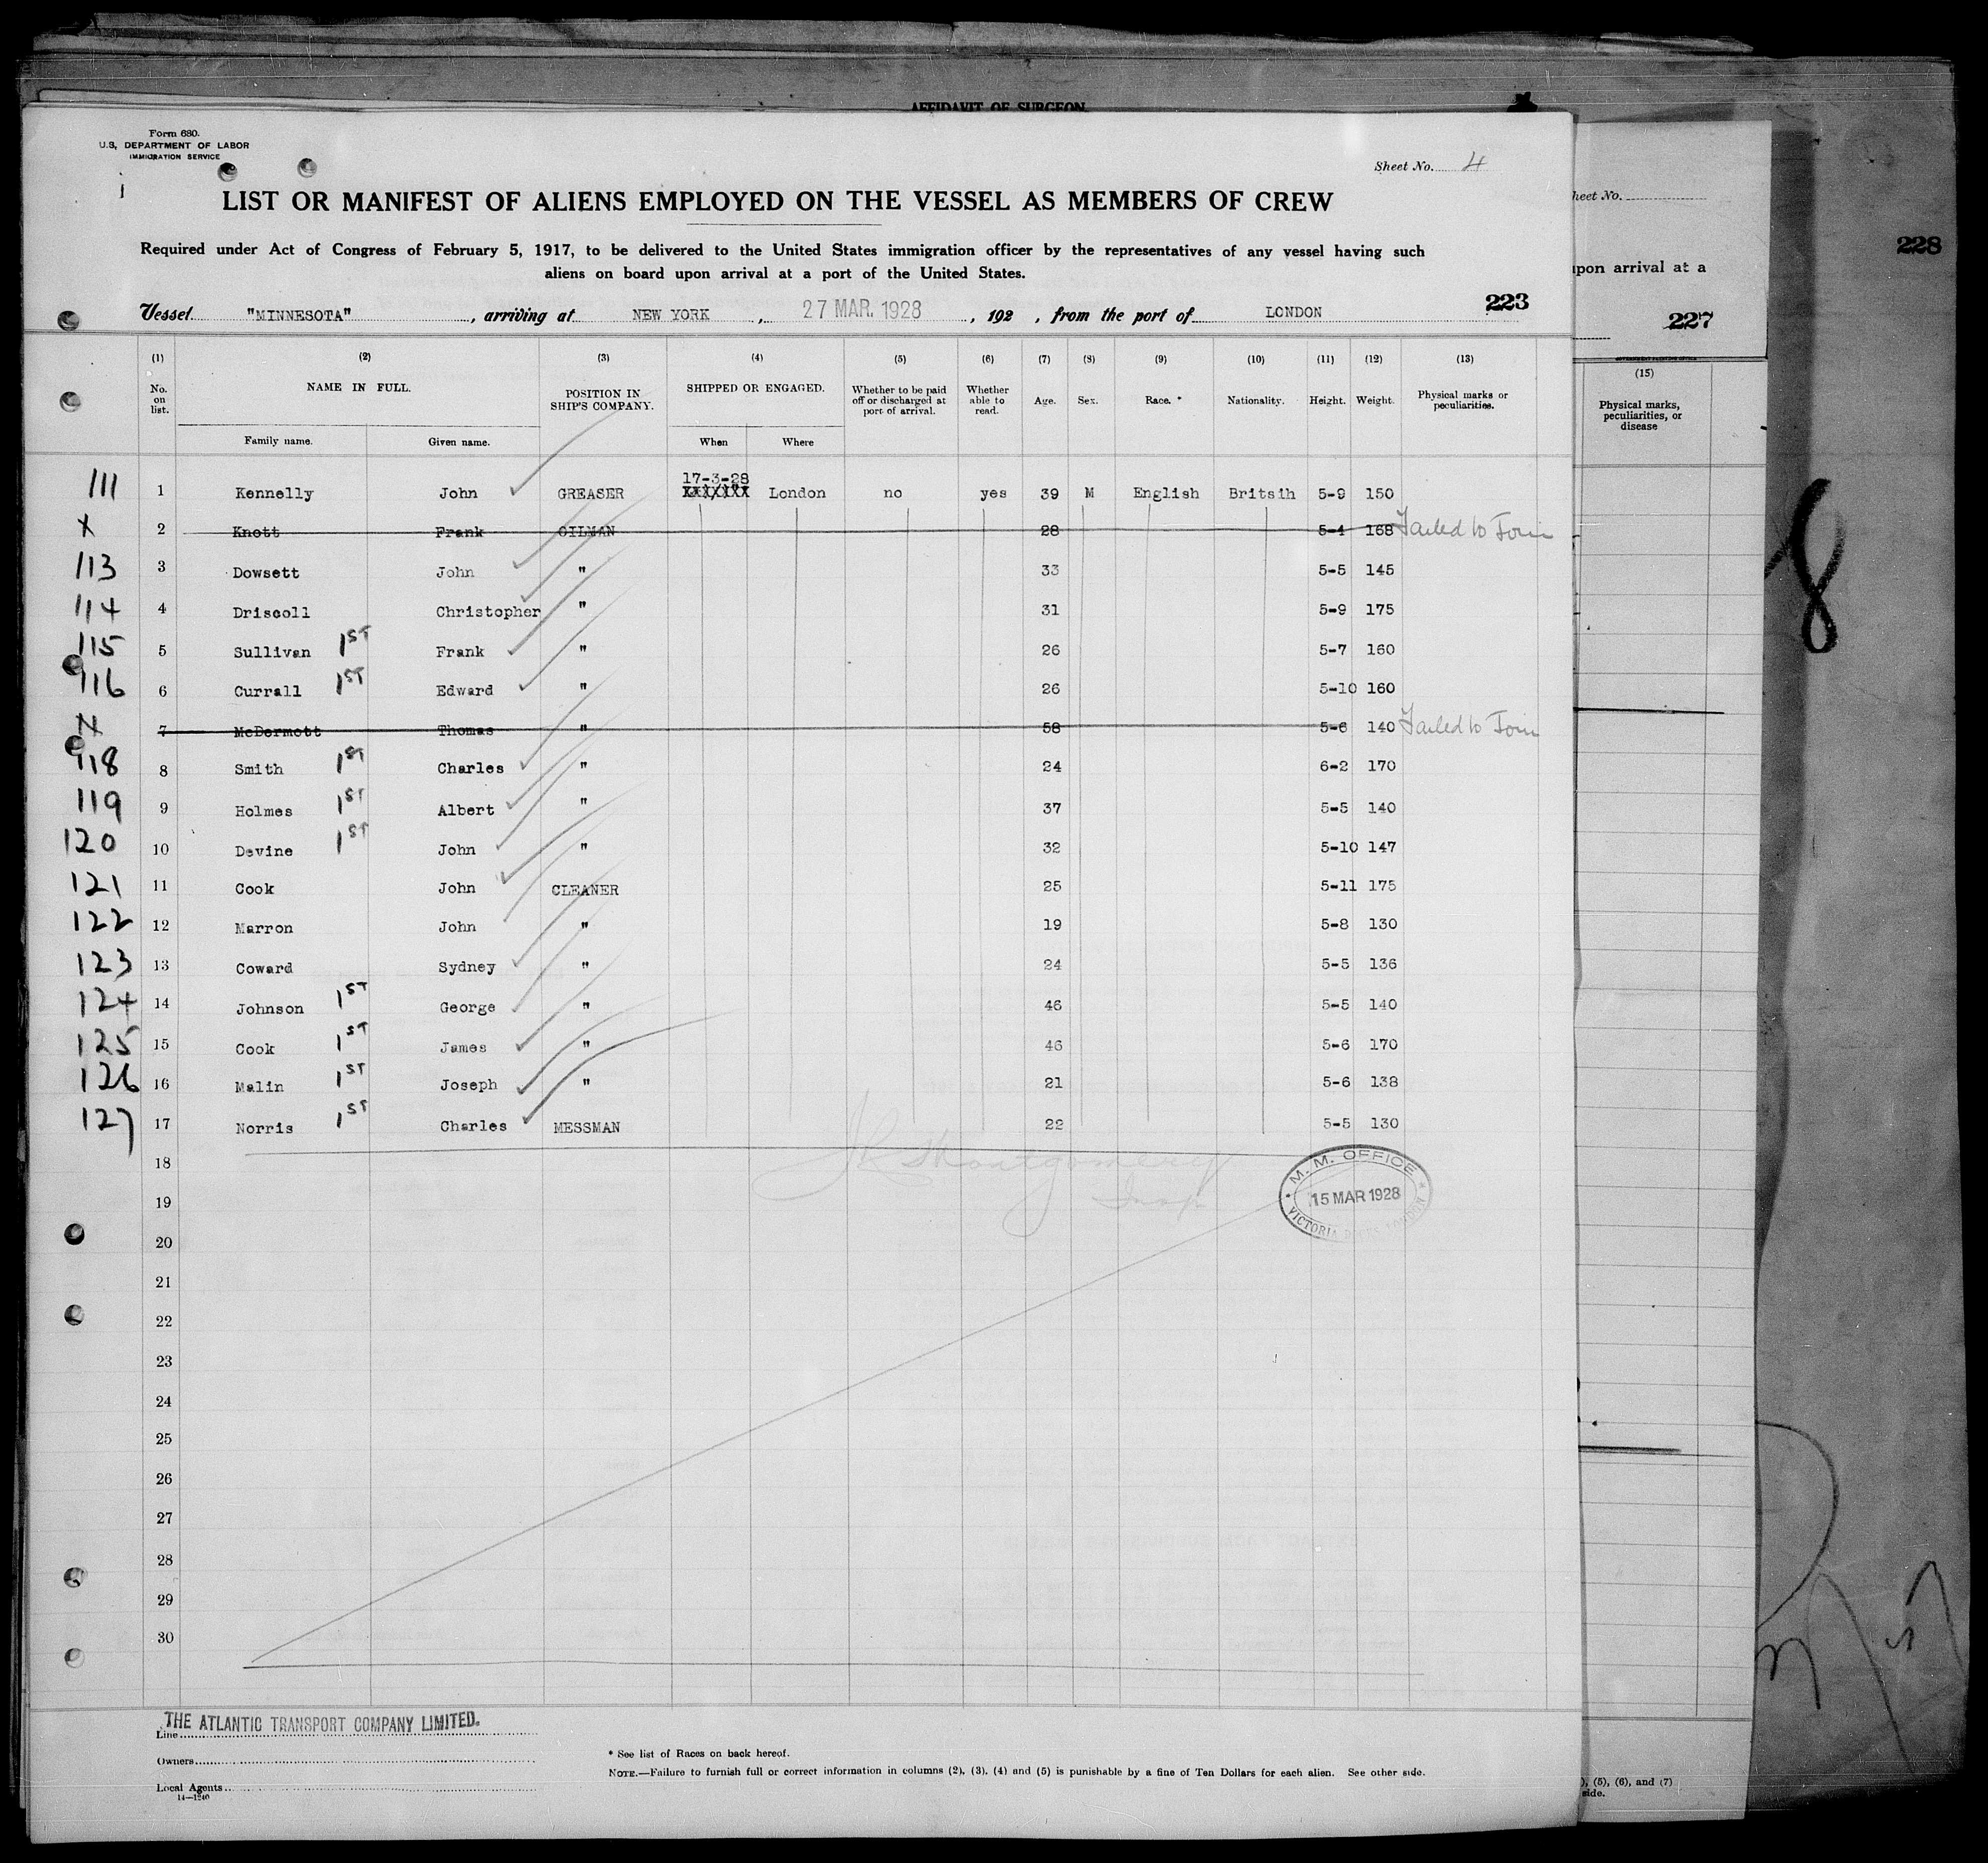 AFFIDAVIT OF SURGEON
Form 680.
U.S. DEPARTMENT OF LABOR
IMMIGRATION SERVICE
Sheet No. 4
LIST OR MANIFEST OF ALIENS EMPLOYED ON THE VESSEL AS MEMBERS OF CREW
Required under Act of Congress of February 5, 1917, to be delivered to the United States immigration officer by the representatives of any vessel having such
aliens on board upon arrival at a port of the United States.
Vessel "MINNESOTA", arriving at NEW YORK, 27 MAR. 1928, 192 , from the port of LONDON
223
(1) (2) (3) (4) (5) (6) (7) (8) (9) (10) (11) (12) (13)
No. on list. NAME IN FULL. POSITION IN SHIP'S COMPANY. SHIPPED OR ENGAGED. Whether to be paid off or discharged at port of arrival. Whether able to read. Age. Sex. Race. * Nationality. Height. Weight. Physical marks or peculiarities.
Family name. Given name. When Where
17-3-28
111 1 Kennelly John GREASER XXXXXXX London no yes 39 M English Britsih 5-9 150
X 2 Knott Frank OILMAN 28 5-4 168 Failed to Join
113 3 Dowsett John " 33 5-5 145
114 4 Driscoll Christopher " 31 5-9 175
115 5 Sullivan 1ST Frank " 26 5-7 160
116 6 Currall 1ST Edward " 26 5-10 160
X 7 McDermott Thomas " 58 5-6 140 Failed to Join
118 8 Smith 1ST Charles " 24 6-2 170
119 9 Holmes 1ST Albert " 37 5-5 140
120 10 Devine 1ST John " 32 5-10 147
121 11 Cook John CLEANER 25 5-11 175
122 12 Marron John " 19 5-8 130
123 13 Coward Sydney " 24 5-5 136
124 14 Johnson 1ST George " 46 5-5 140
125 15 Cook 1ST James " 46 5-6 170
126 16 Malin 1ST Joseph " 21 5-6 138
127 17 Norris 1ST Charles MESSMAN 22 5-5 130
18
Montgomery
Insp
M. M. OFFICE
15 MAR 1928
VICTORIA DOCKS LONDON
19
20
21
22
23
24
25
26
27
28
29
30
THE ATLANTIC TRANSPORT COMPANY LIMITED.
Line
Owners
Local Agents
14—1240
* See list of Races on back hereof.
NOTE.—Failure to furnish full or correct information in columns (2), (3), (4) and (5) is punishable by a fine of Ten Dollars for each alien. See other side.
heet No.
upon arrival at a
227
(15)
Physical marks,
peculiarities, or
disease
), (5), (6), and (7)
side.
228
8